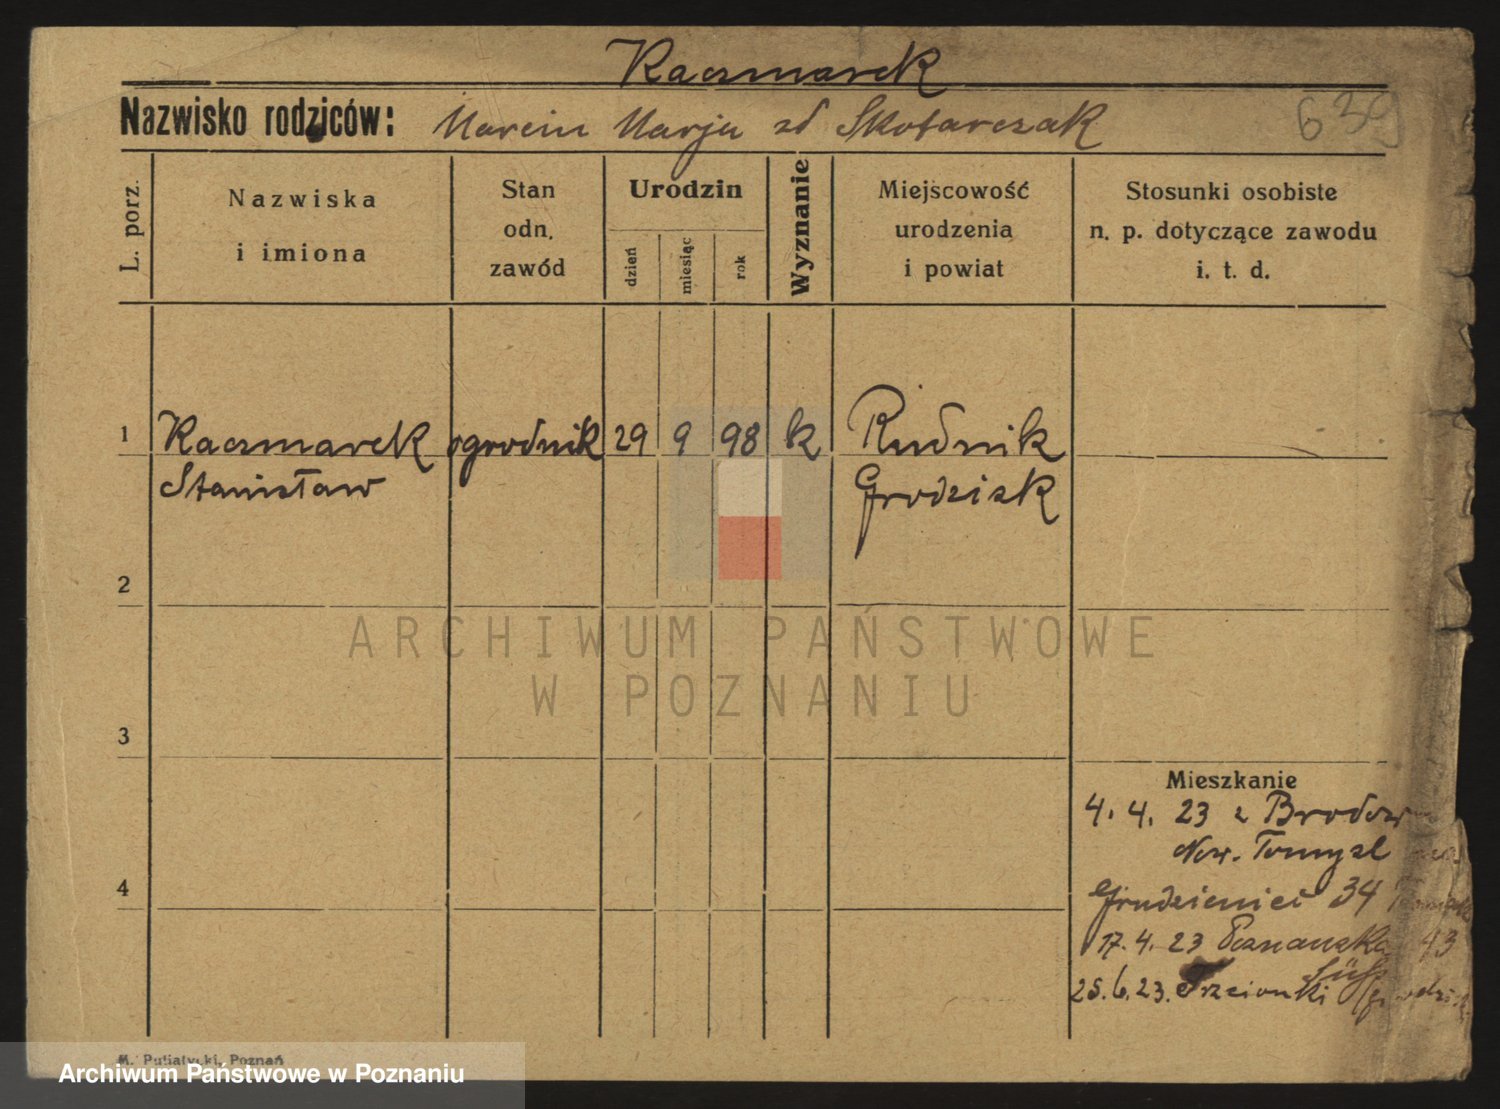 Kaczmarek
Nazwisko rodziców: Marcin Marja zd Skotarczak 639
L. porz.
Nazwiska i imiona
Stan odn. zawód
Urodzin
dzień
miesiąc
rok
Wyznanie
Miejscowość urodzenia i powiat
Stosunki osobiste n. p. dotyczące zawodu i. t. d.
1 Kaczmarek ogrodnik 29 9 98 k Rudnik
Stanisław Grodzisk
2
ARCHIWUM PAŃSTWOWE
W POZNANIU
3
Mieszkanie
4. 4. 23 z
Now. Tomysl
4
Grudzieniec 34
17. 4. 23 Poznanska 43
25. 6. 23. Trzcionki
M. Putiatycki, Poznań
Archiwum Państwowe w Poznaniu